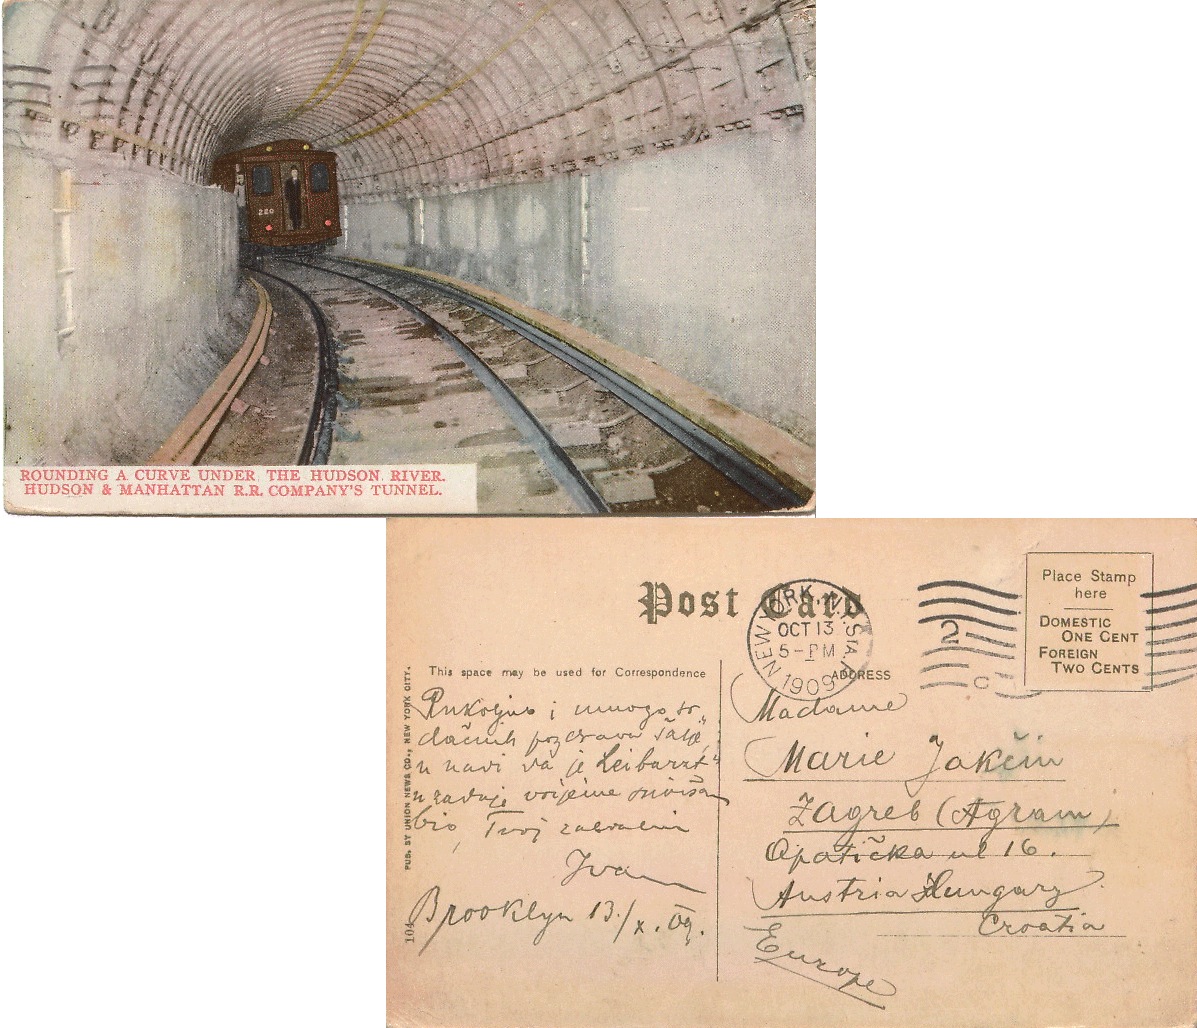 280
ROUNDING A CURVE UNDER THE HUDSON RIVER.
HUDSON & MANHATTAN R.R. COMPANY'S TUNNEL.
Post Card
NEW YORK, N.Y. STA.
OCT 13
5-PM
1909
2
C
Place Stamp
here
DOMESTIC
ONE CENT
FOREIGN
TWO CENTS
This space may be used for Correspondence
ADDRESS
Rukoljub i mnogo sr
dačnih pozdrava šalje
u navi
u zadnje vrijeme
bio, Tvoj zahvalni
Ivan
Brooklyn 13./X. 09.
Madame
Marie Jakčin
Zagreb (Agram)
Opatička ul 16.
Austria Hungary
Croatia
Europe
PUB. BY UNION NEWS CO., NEW YORK CITY.
104